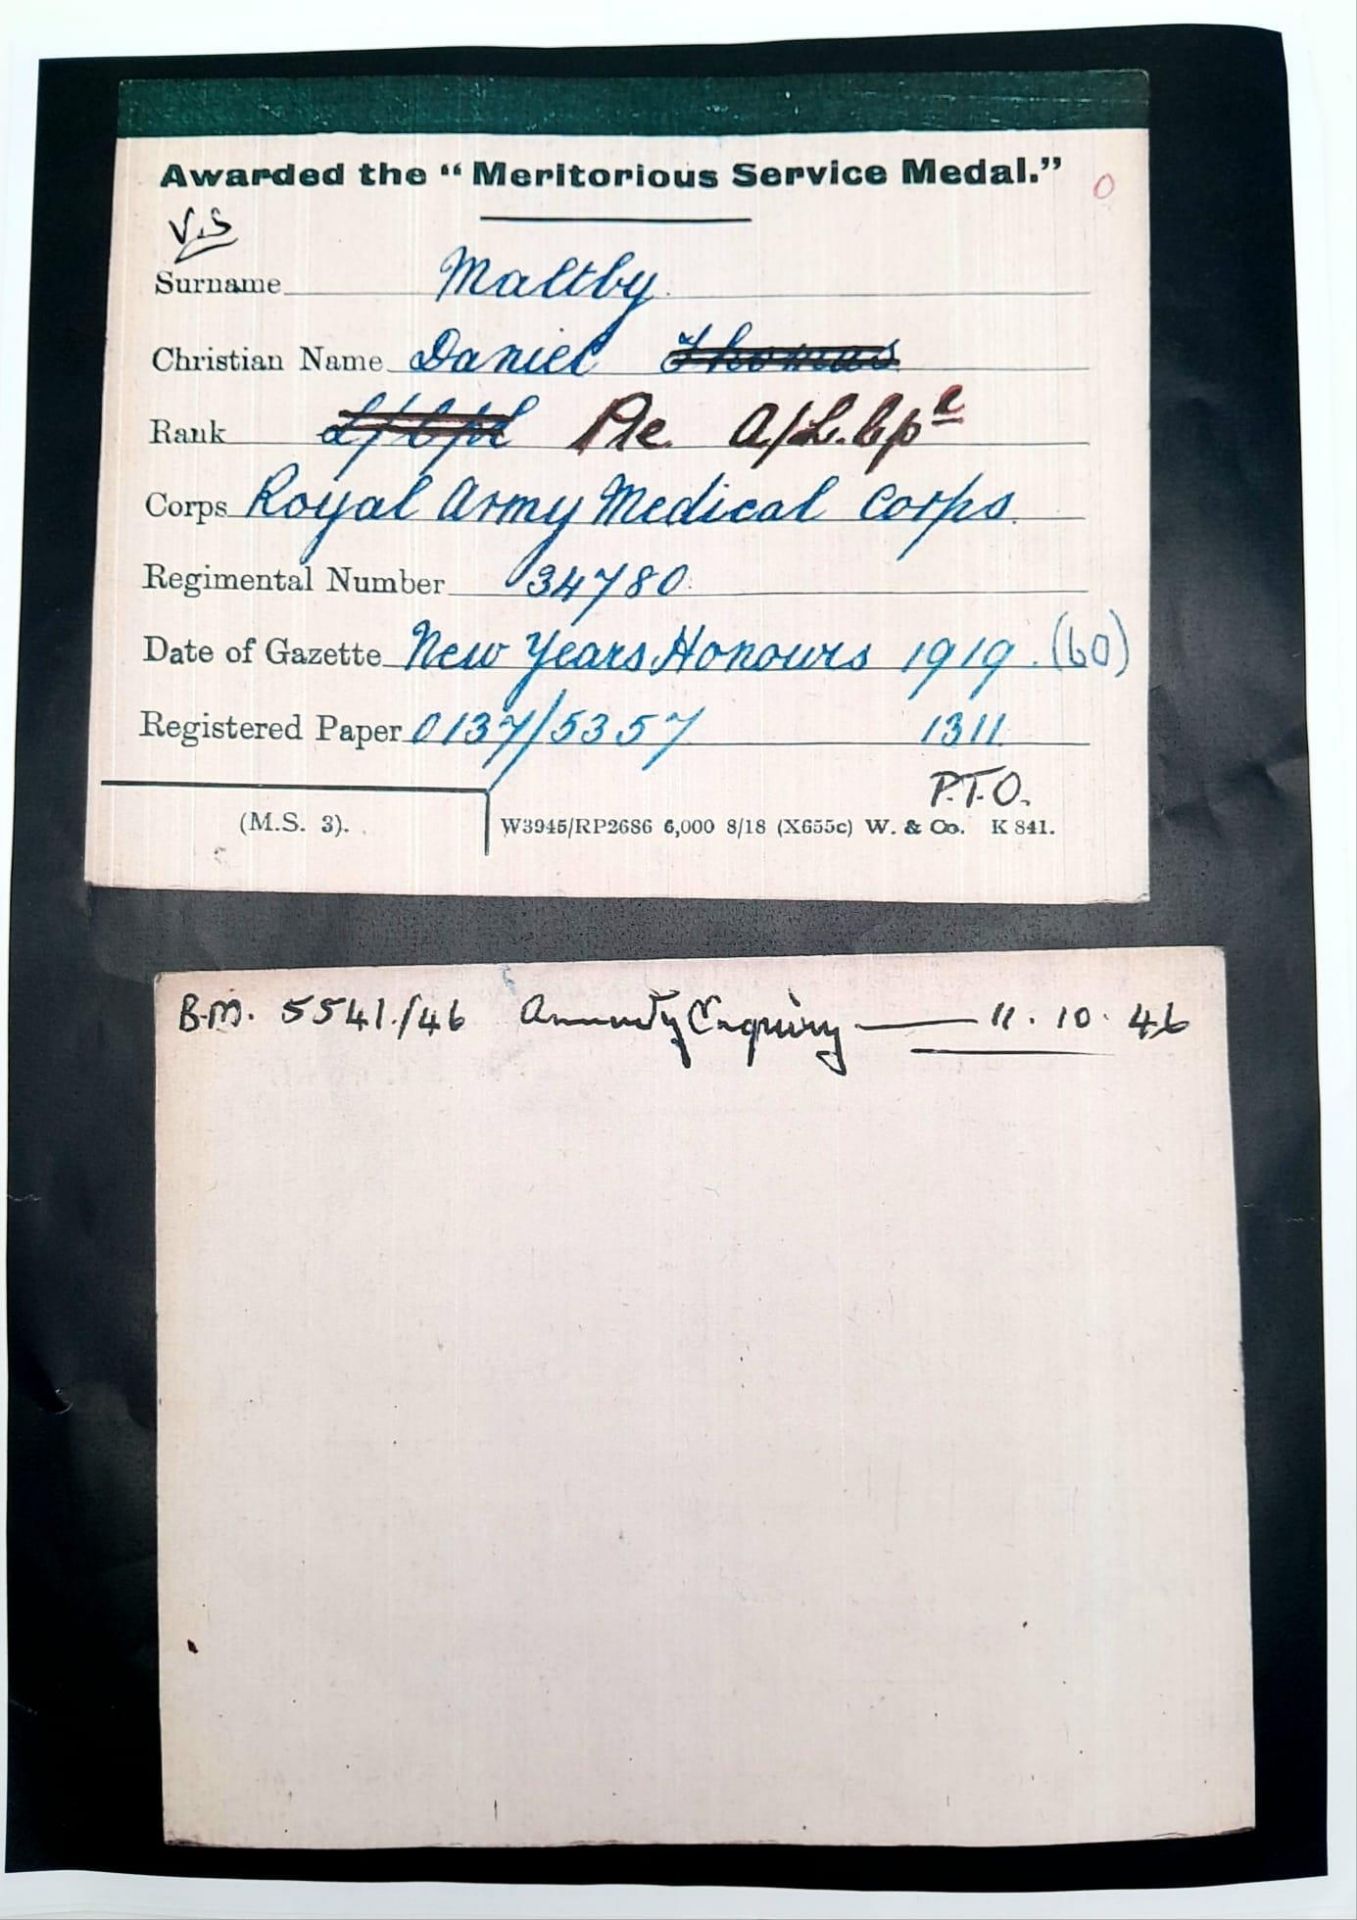 Awarded the “Meritorious Service Medal.”
O
V.S
Surname Maltby.
Christian Name Daniel Thomas
Rank L/Cpl Pte. A/L.Cpl
Corps Royal Army Medical Corps.
Regimental Number 34780.
Date of Gazette New Years Honours 1919. (60)
Registered Paper 0137/5357 1311.
P.T.O.
(M.S. 3). W3945/RP2686 6,000 8/18 (X655c) W. & Co. K 841.
B.M. 5541./46 Annuity Enquiry — 11. 10. 46